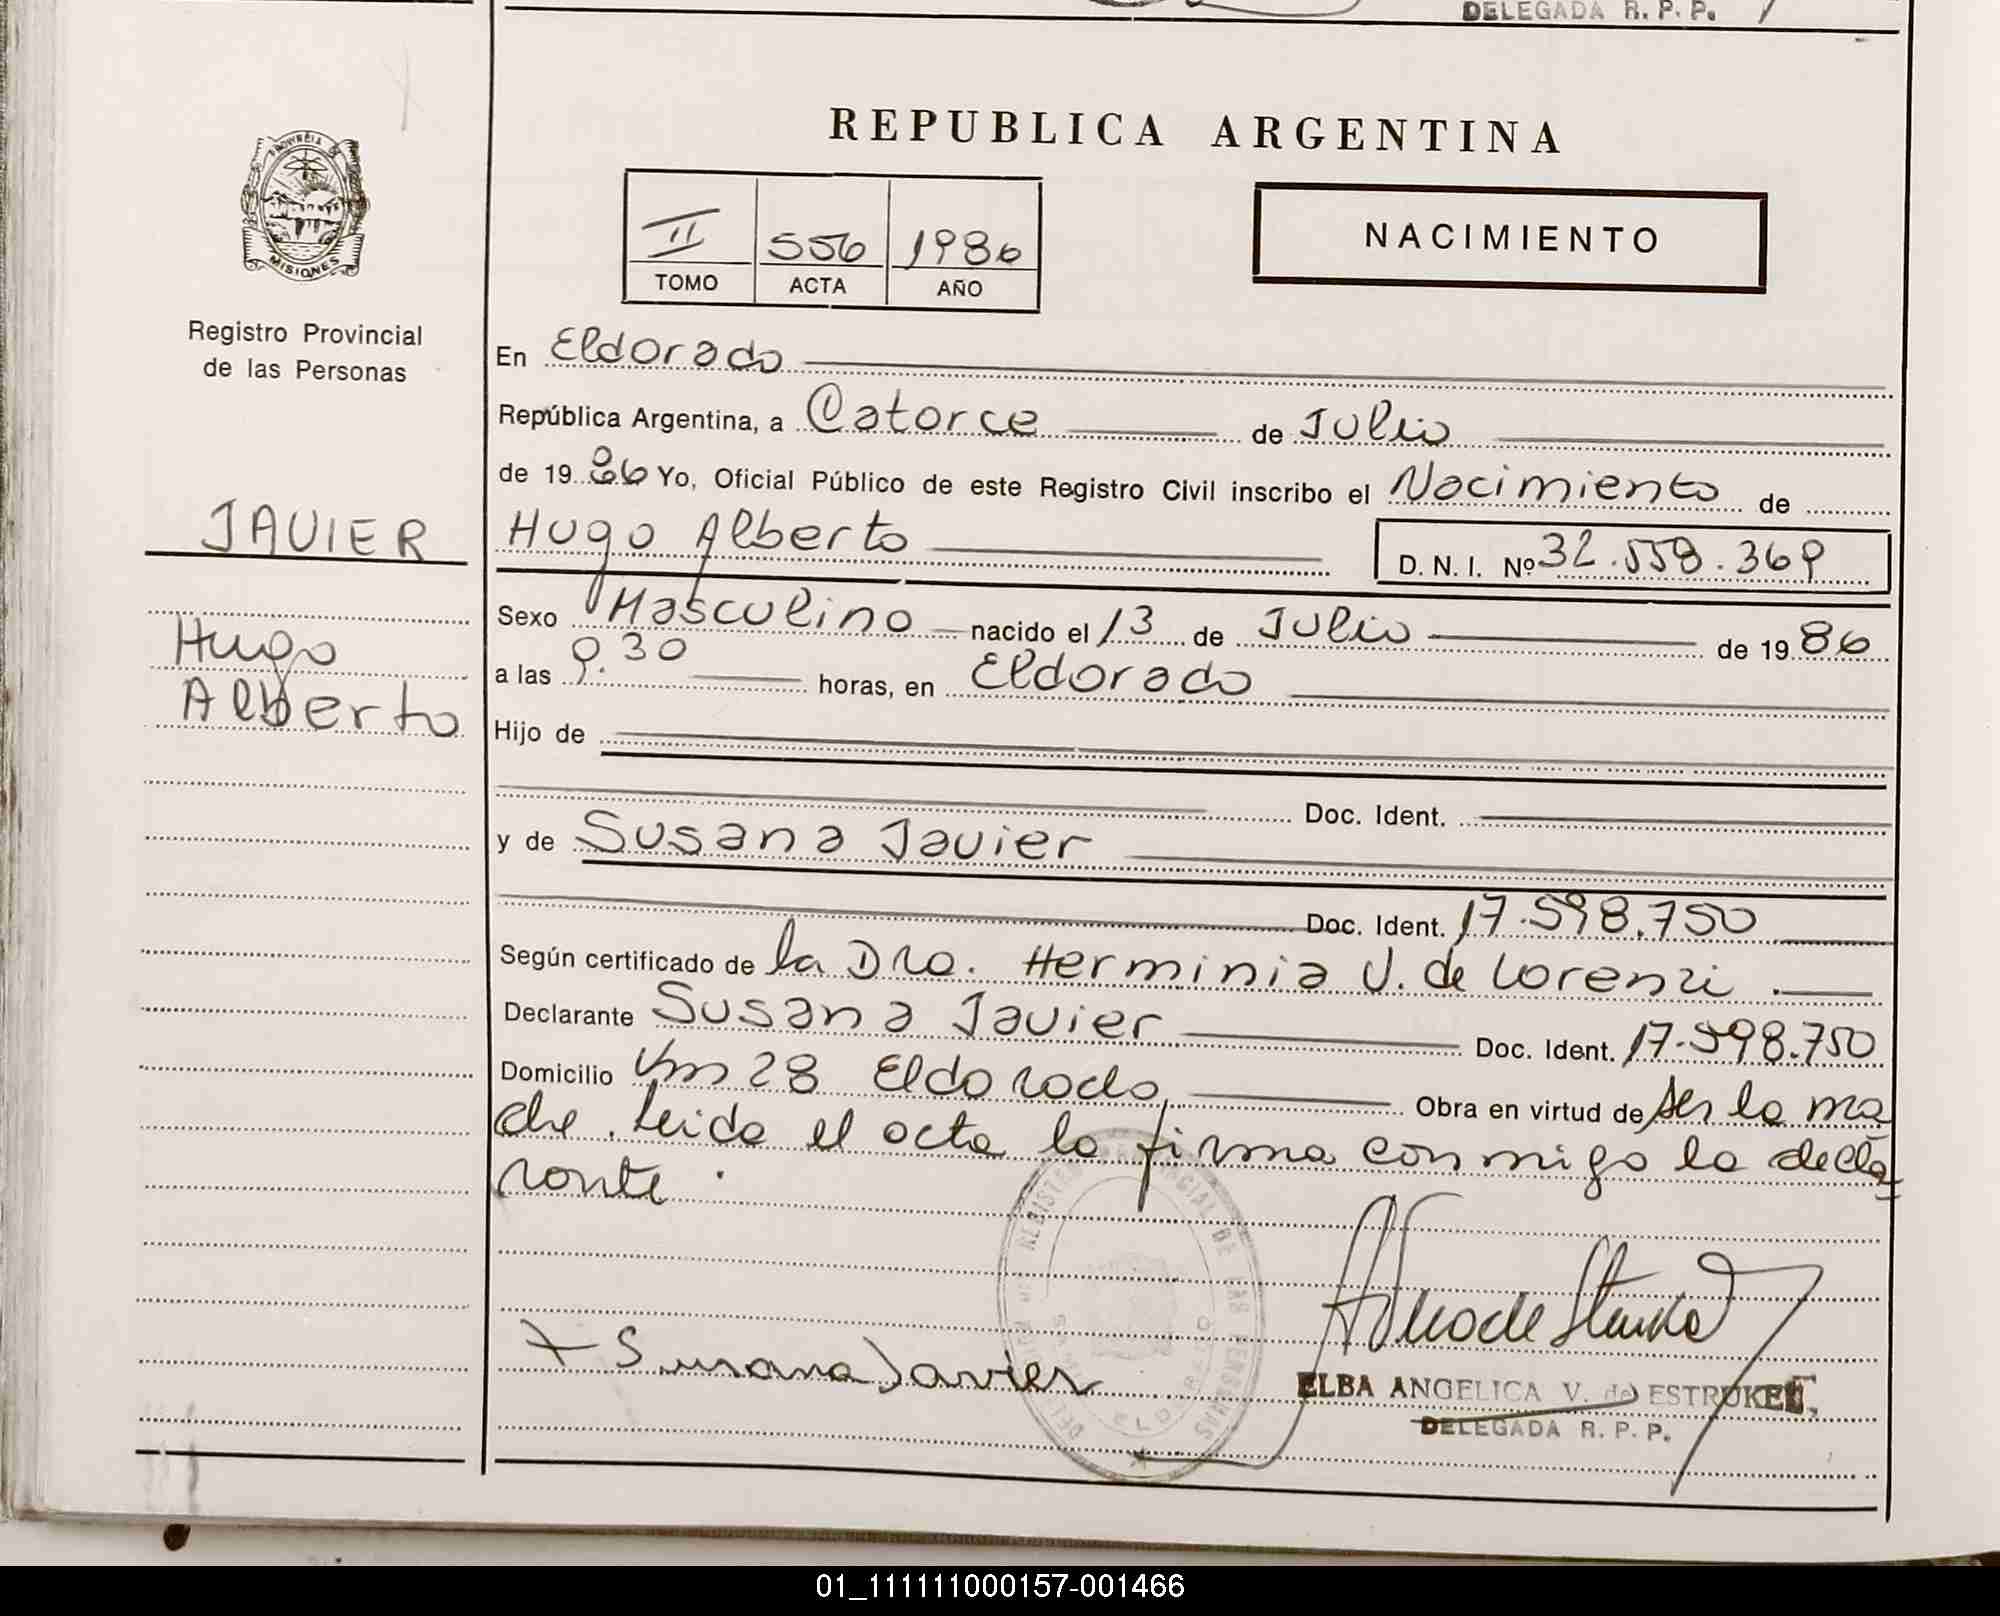 DELEGADA R. P. P.
REPUBLICA ARGENTINA
PROVINCIA DE
MISIONES
II 556 1986
TOMO ACTA AÑO
NACIMIENTO
Registro Provincial
de las Personas
JAVIER
Hugo
Alberto
En Eldorado
República Argentina, a Catorce de Julio
de 19 86 Yo, Oficial Público de este Registro Civil inscribo el Nacimiento de
Hugo Alberto D. N. I. Nº 32.558.369
Sexo Masculino nacido el 13 de Julio de 19 86
a las 9.30 horas, en Eldorado
Hijo de
Doc. Ident.
y de Susana Javier
Doc. Ident. 17.598.750
Según certificado de la Dra. Herminia V. de Lorenzi.
Declarante Susana Javier Doc. Ident. 17.598.750
Domicilio Km 28 Eldorado, Obra en virtud de ser la ma
dre. Leida el acta la firma conmigo la decla
rante.
REGISTRO PROVINCIAL DE LAS PERSONAS
ELDORADO
x Susana Javier
ELBA ANGELICA V. de ESTRUKEL
DELEGADA R. P. P.
01_111111000157-001466